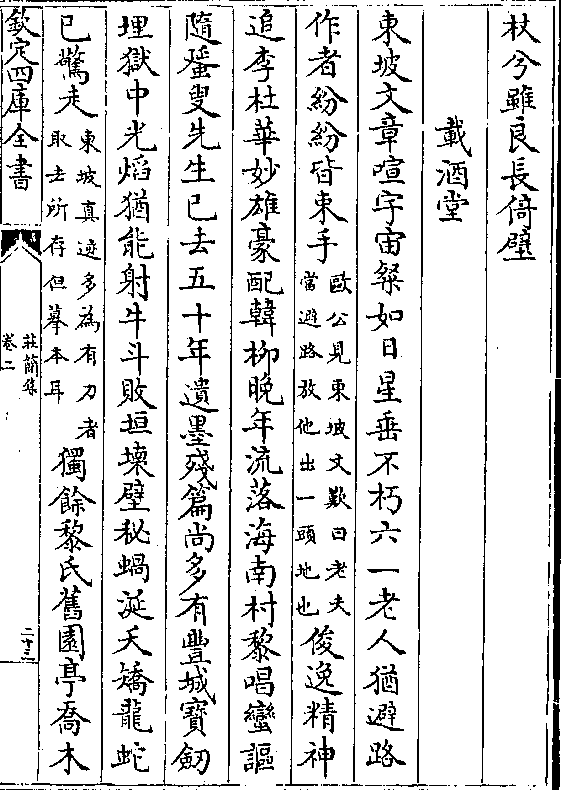 杖兮雖良長倚壁
載酒堂
東坡文章喧宇宙粲如日星垂不朽六一老人猶避路
作者紛紛皆束手歐公見東坡文歎曰老夫當避路放他出一頭地也俊逸精神
追李杜華妙雄豪配韓柳晚年流落海南村黎唱蠻謳
隨蜑叟先生已去五十年遺墨殘篇尚多有豐城寶劒
埋獄中光熖猶能射牛斗敗垣壊壁秘蝸涎夭矯龍蛇
已驚走東坡真迹多為有力者取去所存但摹本耳獨餘黎氏舊園亭喬木
欽定四庫全書
莊簡集
卷二
二十三